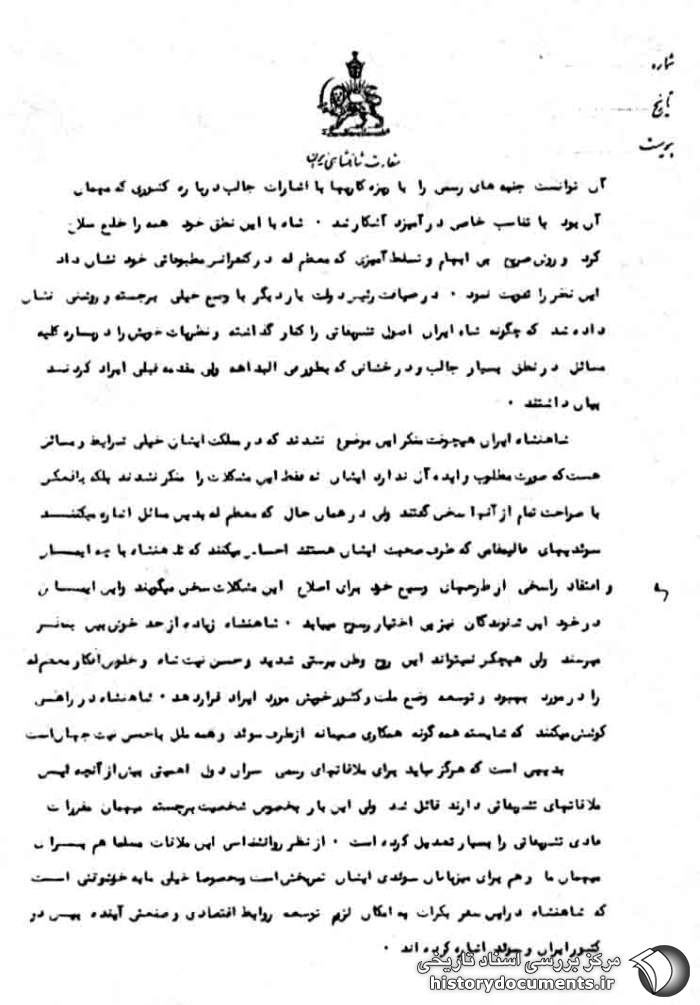 شماره
تاریخ
پیوست
سفارت شاهنشاهی ایران
آن توانست جنبه های رسمی را با ریزه کاریها با اشارات جالب درباره کشوری که میهمان
آن بود با تناسب خاص در آمیزد آشکار شد . شاه با این نطق خود همه را خلع سلاح
کرد و روش صریح بی ابهام و تسلط آمیزی که معظم له در کنفرانس مطبوعاتی خود نشان داد
این نظر را تقویت نمود . در ضیافت رئیس دولت بار دیگر با وضع خیلی برجسته و روشنی نشان
داده شد که چگونه شاه ایران اصول تشریفاتی را کنار گذاشته و نظریات خویش را درباره کلیه
مسائل در نطق بسیار جالب و درخشانی که بطور فی البداهه ولی مقدمه قبلی ایراد کردند
بیان داشتند .
شاهنشاه ایران هیچوقت منکر این موضوع نشدند که در مملکت ایشان خیلی شرایط و مسائل
هست که صورت مطلوب و ایده آل ندارد ایشان نه فقط این مشکلات را منکر نشدند بلکه بالعکس
با صراحت تمام از آنها سخن گفتند ولی در همان حال که معظم له بدین مسائل اشاره میکنند
سوئدیهای عالیمقامی که طرف صحبت ایشان هستند احساس میکنند که شاهنشاه با چه ایمان
و اعتقاد راسخی از طرحهای وسیع خود برای اصلاح این مشکلات سخن میگویند و این ایمان
در خود این شنوندگان نیز بی اختیار رسوخ مییابد . شاهنشاه زیاده از حد خوش بین بنظر
میرسند ولی هیچکس نمیتواند این روح وطن پرستی شدید و حسن نیت شاه و خلوص افکار معظم له
را در مورد بهبود و توسعه وضع ملت و کشور خویش مورد ایراد قرار دهد . شاهنشاه در راهی
کوشش میکنند که شایسته همه گونه همکاری صمیمانه از طرف سوئد و همه ملل با حسن نیت جهان است
بدیهی است که هرگز نباید برای ملاقاتهای رسمی سران دول اهمیتی بیش از آنچه این
ملاقاتهای تشریفاتی دارند قائل شد ولی این بار بخصوص شخصیت برجسته میهمان مقررات
عادی تشریفاتی را بسیار تعدیل کرده است . از نظر روانشناسی این ملاقات مسلما هم برای
میهمان ما و هم برای میزبانان سوئدی ایشان ثمربخش است و مخصوصا خیلی مایه خوشوقتی است
که شاهنشاه در این سفر بکرات به امکان لزوم توسعه روابط اقتصادی و صنعتی آینده بین دو
کشور ایران و سوئد اشاره کرده اند .
مرکز بررسی اسناد تاریخی
historydocuments.ir